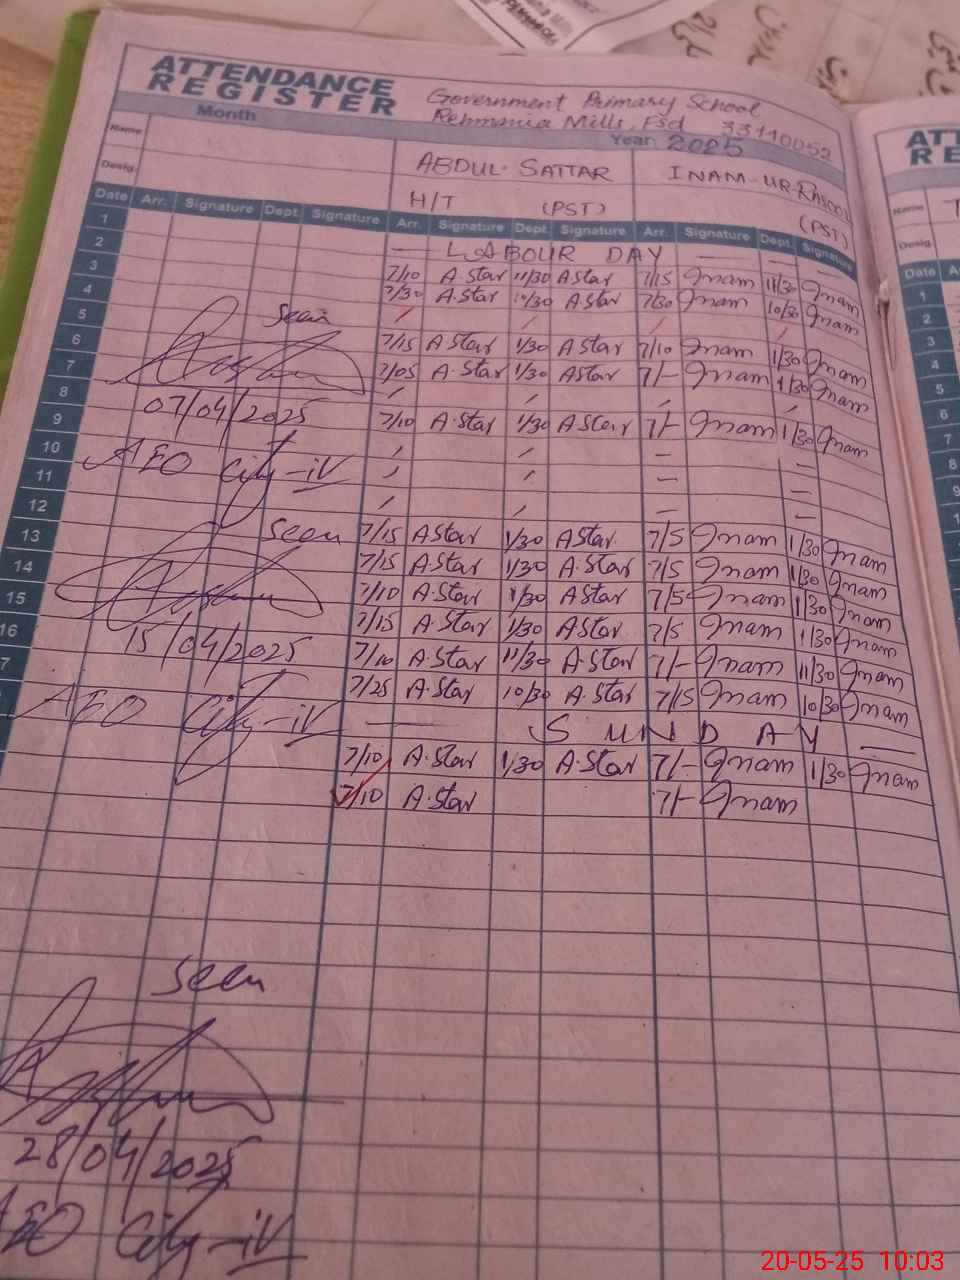 ATTENDANCE
REGISTER
Government Primary School
Rehmania Mills, Fsd 33110052
Month Year 2025
Name ABDUL SATTAR INAM-UR-RASOOL
Desig. H/T (PST) (PST)
Date Arr. Signature Dept. Signature Arr. Signature Dept. Signature Arr. Signature Dept. Signature
1 — LABOUR DAY — — —
2 7/10 A Star 11/30 A Star 7/15 Inam 11/30 Inam
3 7/30 A.Star 10/30 A Star 7/30 Inam 10/30 Inam
4
5 Seen 7/15 A Star 1/30 A Star 7/10 Inam 1/30 Inam
6 7/05 A.Star 1/30 A Star 7/- Inam 1/30 Inam
7
8 07/04/2025 7/10 A.Star 1/30 A Star 7/- Inam 1/30 Inam
9
10 AEO City-iV
11
12 Seen 7/15 A Star 1/30 A Star. 7/5 Inam 1/30 Inam
13 7/15 A.Star 1/30 A.Star 7/5 Inam 1/30 Inam
14 7/10 A.Star 1/30 A.Star 7/5 Inam 1/30 Inam
15 7/15 A.Star 1/30 A Star 7/5 Inam 1/30 Inam
16 15/04/2025 7/10 A.Star 11/30 A.Star 7/- Inam 11/30 Inam
7 7/25 A.Star 10/30 A.Star 7/15 Inam 10/30 Inam
AEO City-iV — SUNDAY —
7/10 A.Star 1/30 A.Star 7/- Inam 1/30 Inam
7/10 A.Star 7/- Inam
Seen
28/04/2025
AEO City-iV
ATT
RE
Name
Desig.
Date
1
2
3
4
5
6
7
8
9
20-05-25 10:03